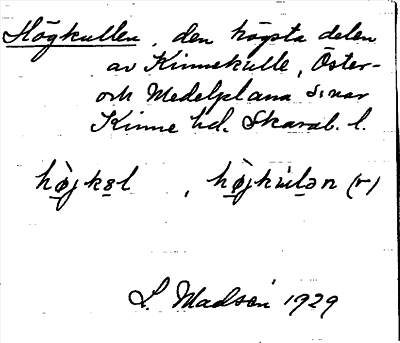 Högkullen, den högsta delen
av Kinnekulle, Öster-
och Medelplana snar
Kinne hd. Skarab. l.
hø̀jkɵl , hø̀jkɵlən (r)
L. Madsén 1929